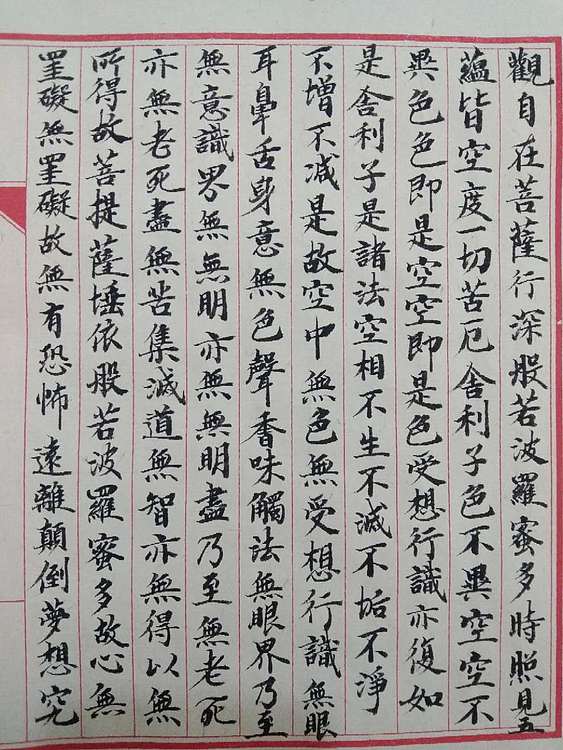 觀自在菩薩行深般若波羅蜜多時照見五
蘊皆空度一切苦厄舍利子色不異空空不
異色色即是空空即是色受想行識亦復如
是舍利子是諸法空相不生不滅不垢不淨
不增不減是故空中無色無受想行識無眼
耳鼻舌身意無色聲香味觸法無眼界乃至
無意識界無無明亦無無明盡乃至無老死
亦無老死盡無苦集滅道無智亦無得以無
所得故菩提薩埵依般若波羅蜜多故心無
罣礙無罣礙故無有恐怖遠離顛倒夢想究